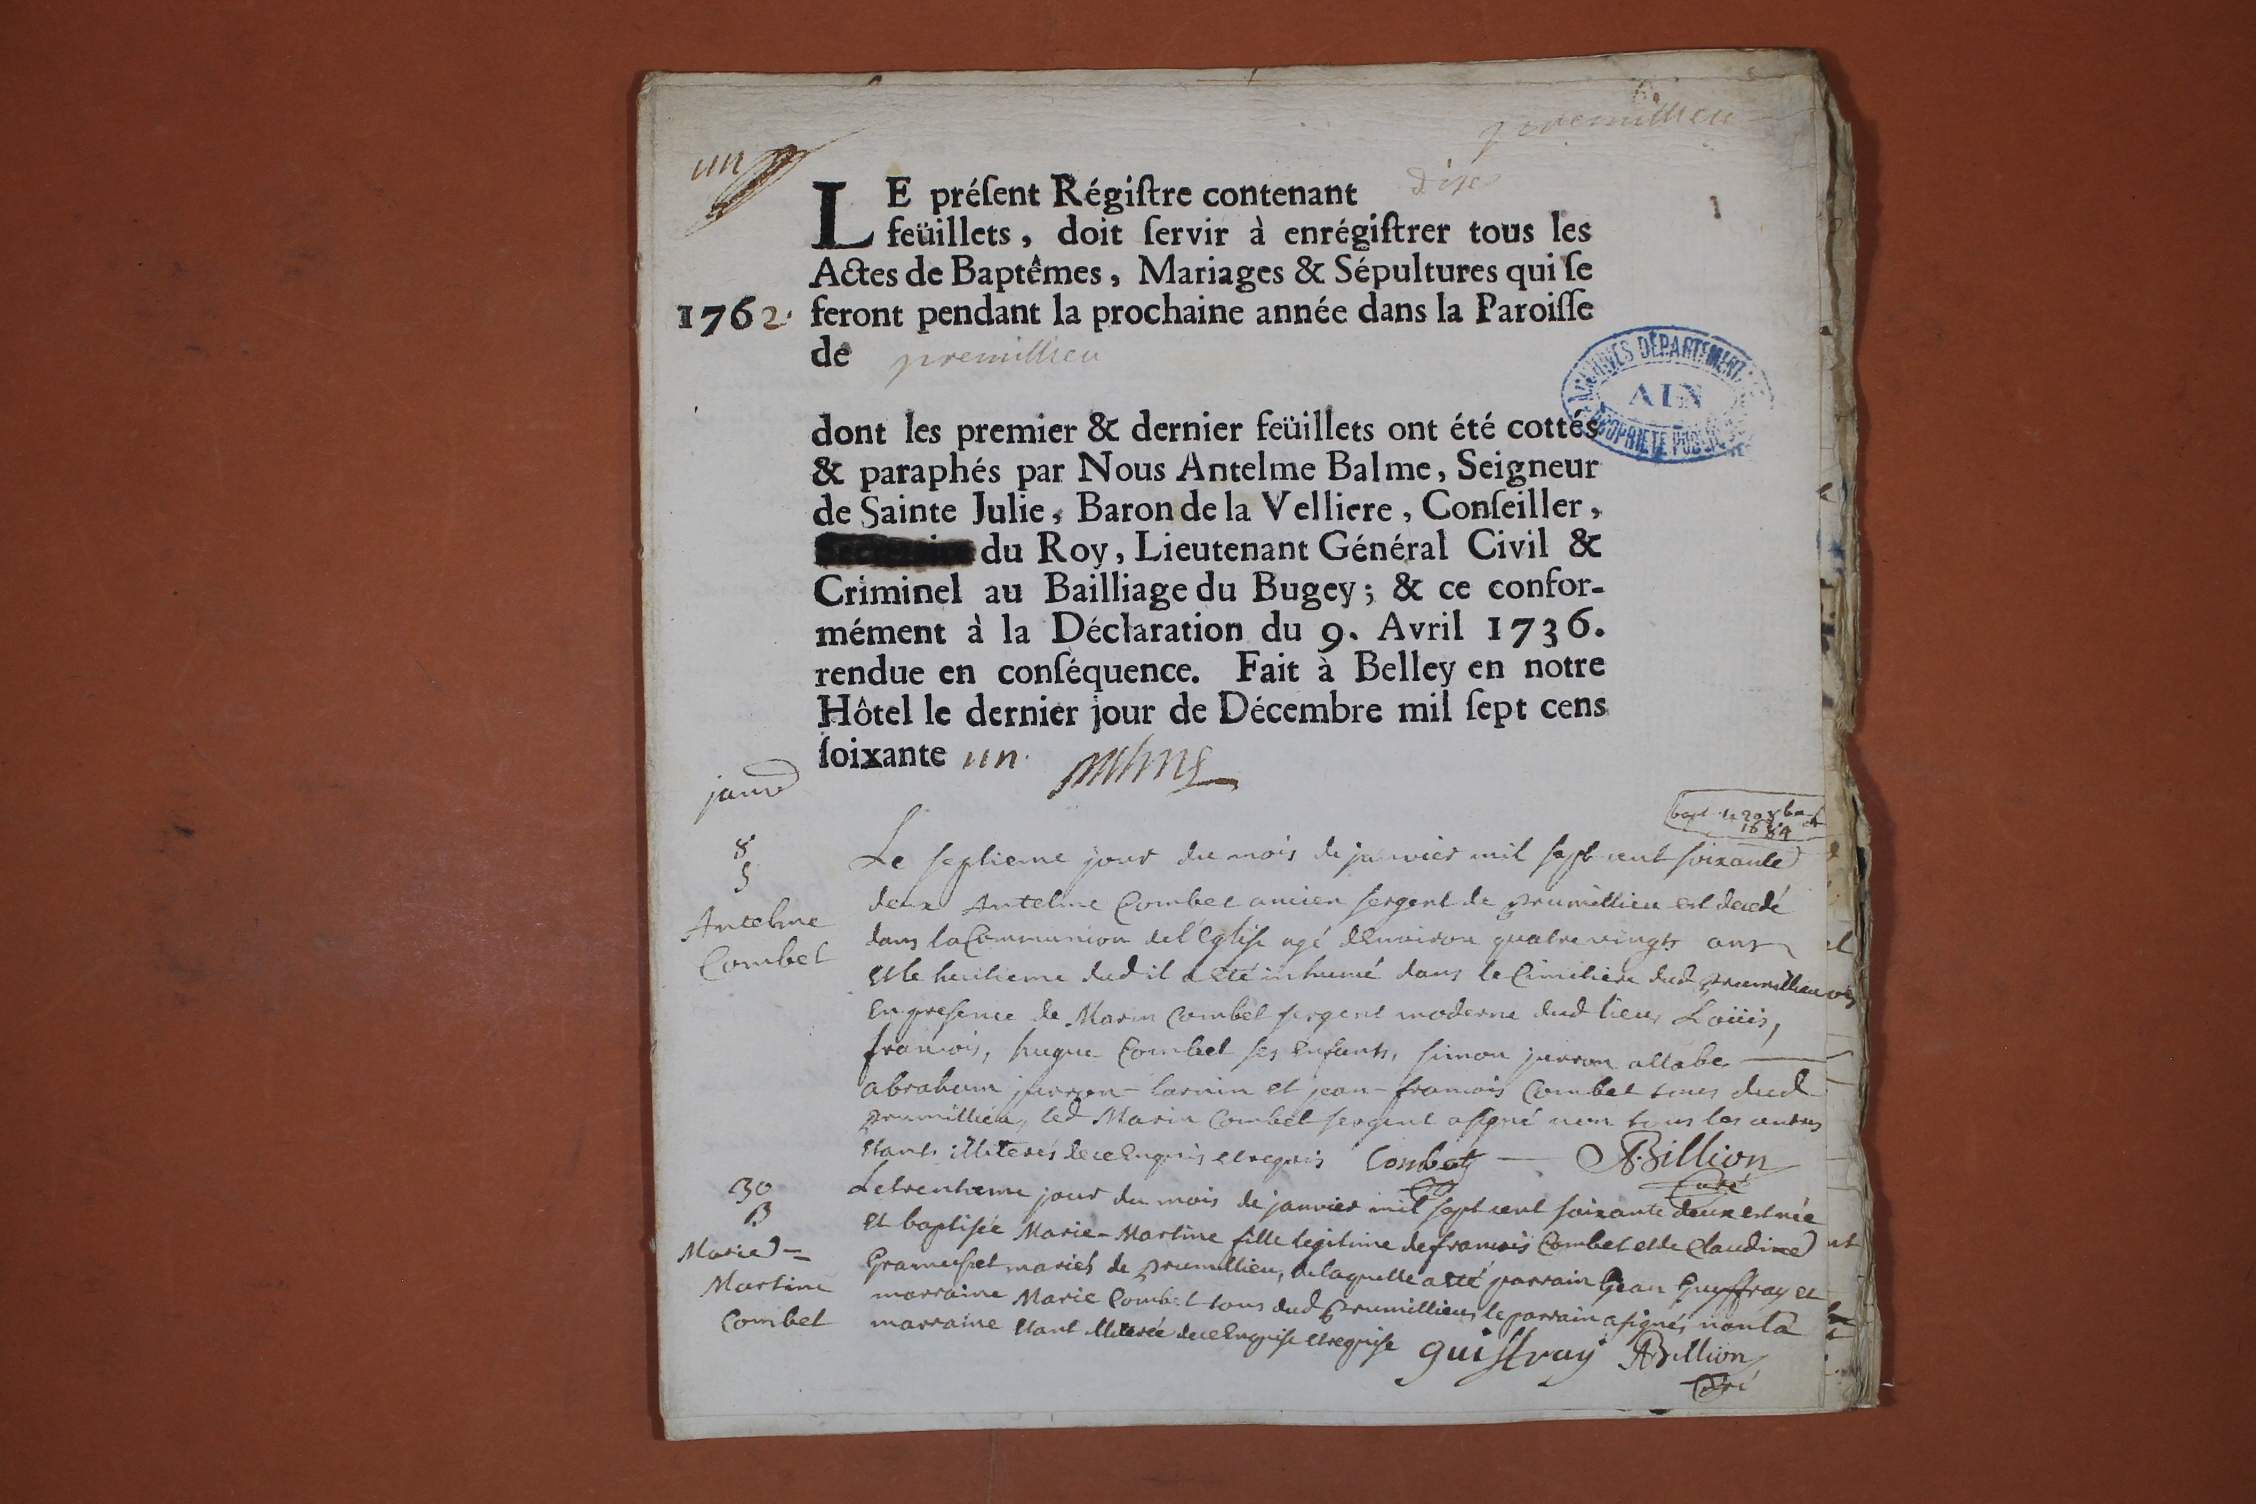 premillieu
un
LE préſent Régiſtre contenant dix
feüillets, doit ſervir à enrégiſtrer tous les
1
Actes de Baptêmes, Mariages & Sépultures qui ſe
1762. feront pendant la prochaine année dans la Paroiſſe
de premillieu
ARCHIVES DÉPARTEMENTALES
AIN
PROPRIÉTÉ PUBLIQUE
dont les premier & dernier feüillets ont été cottés
& paraphés par Nous Antelme Balme, Seigneur
de Sainte Julie, Baron de la Velliere, Conſeiller,
du Roy, Lieutenant Général Civil &
Criminel au Bailliage du Bugey; & ce confor-
mément à la Déclaration du 9. Avril 1736.
rendue en conſéquence. Fait à Belley en notre
Hôtel le dernier jour de Décembre mil ſept cens
ſoixante un. Balme
janvr
8
S
Antelme
Combet
bapt. 1684
Le septieme jour du mois de janvier mil sept cent soixante
deux Antelme Combet ancien sergent de prumillieu est decedé
dans la Communion de l'Eglise agé d'Environ quatre vingts ans
et le huitieme dud il a eté inhumé dans le Cimitiere dud prumillieu
En presence de Marin Combet sergent moderne dud lieu, Loüis,
francois, hugue Combet ses Enfants, simon juron allabe
abraham juron-larnin et jean-francois Combet tous dud
prumillieu, led Marin Combet sergent a signé non tous les autres
Etants illiterés de ce Enquis et requis Combet A.Billion
Curé
30
B
Marie =
Martine
Combet
Le trentieme jour du mois de janvier mil sept cent soixante deux est née
et baptisée Marie-Martine fille legitime de francois Combet et de Claudine
mariés de prumillieu, de laquelle a eté parrain Jean Guyffray et
marraine Marie Combet tous dud prumillieu, le parrain a signé, non la
marraine Etant illiterée de ce Enquise et requise guiffray ABillion
Curé